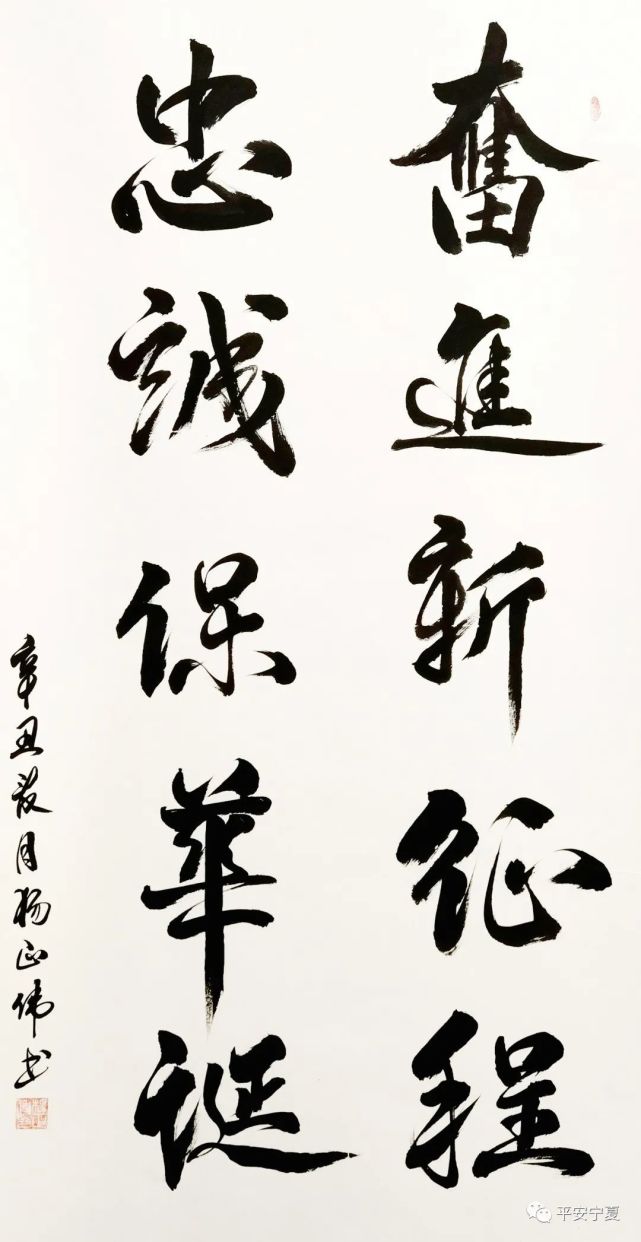 奮進新征程
忠誠保華誕
辛丑荷月杨正伟书
平安宁夏